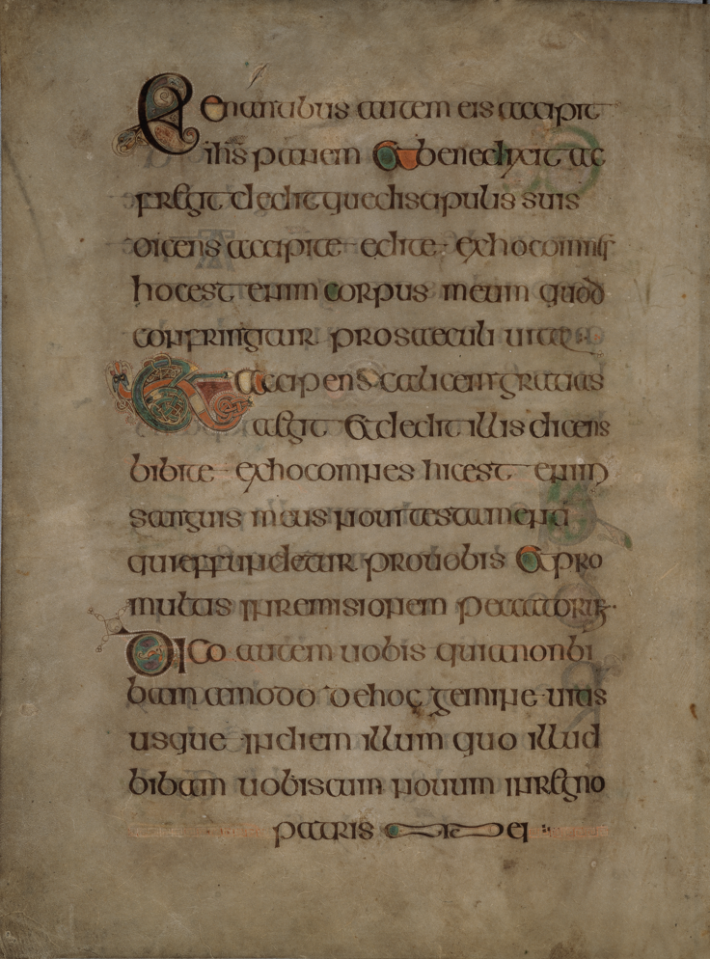 Cenantibus autem eis accipit
ihs panem et benedixit ac
fregit deditque discipulis suis
dicens accipite edite exhocomnes
hocest enim corpus meum quod
confringitur prosaeculi uita
Et accipens calicem gratias
aegit et dedit illis dicens
bibite exhocomnes hicest enim
sanguis meus noui testamenti
quieffundetur prouobis et pro
multis inremisionem peccatorum
Dico autem uobis quianonbi
bam amodo dehoc genimine uitis
usque indiem illum quo illud
bibam uobiscum nouum inregno
patris mei